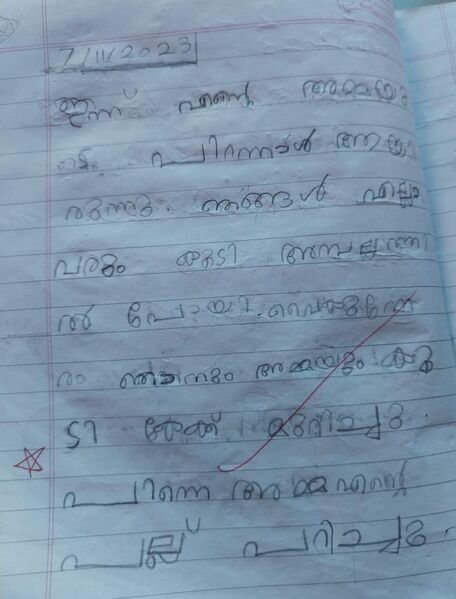 7/11/2023
ഇന്ന് എന്റെ അമ്മയു
ടെ പിറന്നാൾ ആയി
രുന്നു. ഞങ്ങൾ എല്ലാ
വരും കൂടി അമ്പലത്തി
ൽ പോയി. വൈകുന്നേ
രം ഞാനും അമ്മയും കൂ
ടി കേക്ക് മുറിച്ചു.
പിന്നെ അമ്മ എന്റെ
പല്ല് പറിച്ചു.